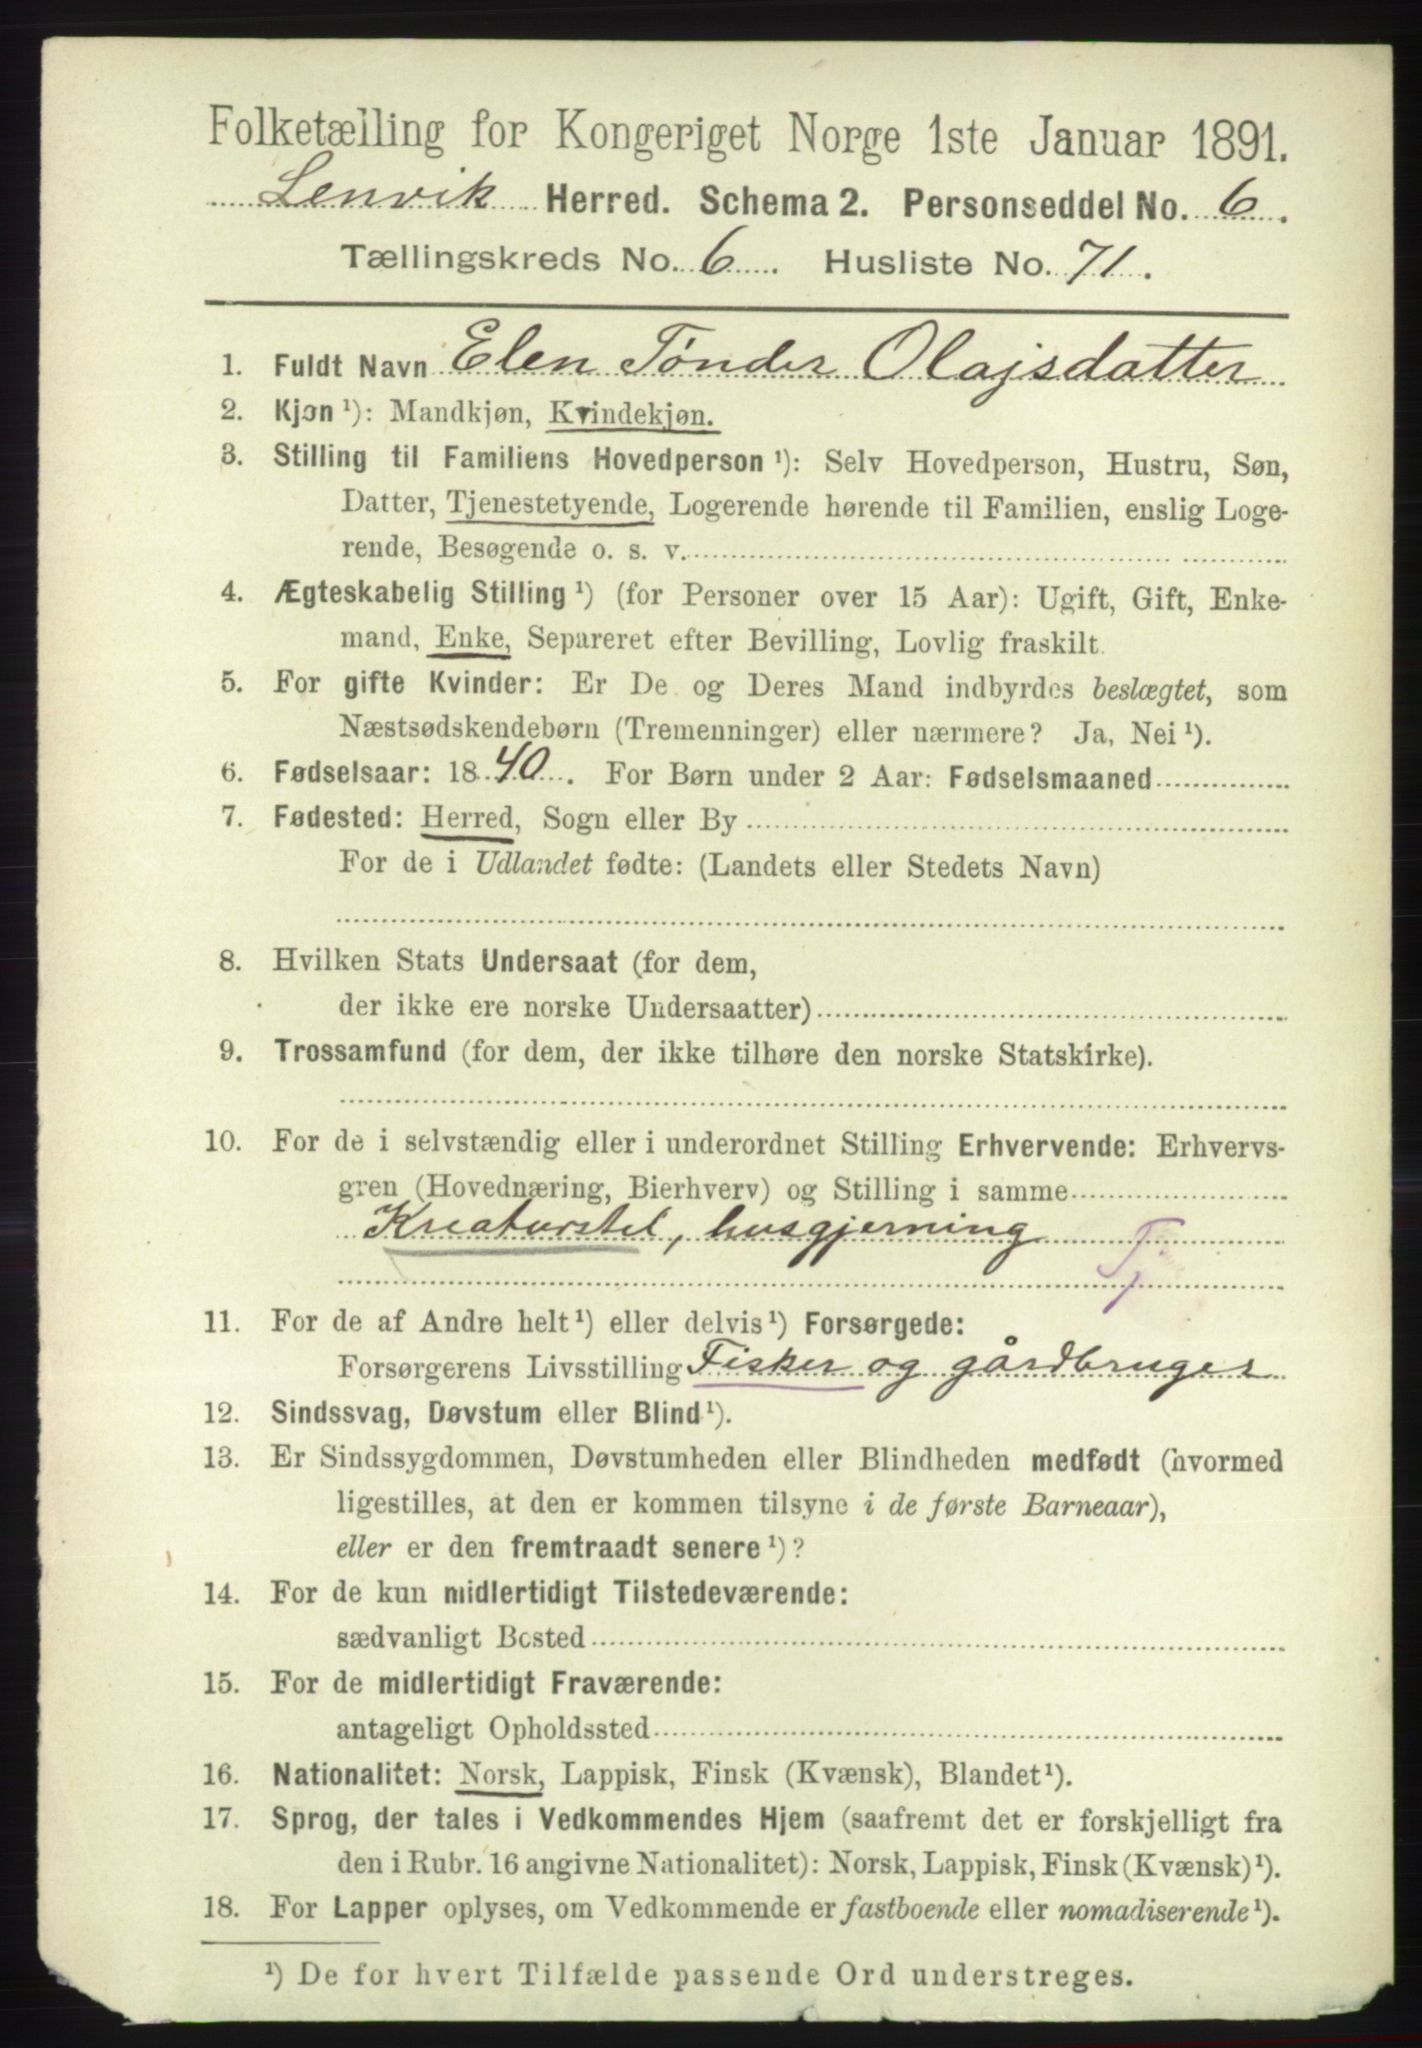 Folketælling for Kongeriget Norge 1ste Januar 1891.
Lenvik Herred. Schema 2. Personseddel No. 6.
Tællingskreds No. 6. Husliste No. 71.
1. Fuldt Navn Elen Tønder Olajsdatter
2. Kjøn ¹): Mandkjøn, Kvindekjøn.
3. Stilling til Familiens Hovedperson ¹): Selv Hovedperson, Hustru, Søn,
Datter, Tjenestetyende, Logerende hørende til Familien, enslig Loge-
rende, Besøgende o. s. v.
4. Ægteskabelig Stilling ¹) (for Personer over 15 Aar): Ugift, Gift, Enke-
mand, Enke, Separeret efter Bevilling, Lovlig fraskilt.
5. For gifte Kvinder: Er De og Deres Mand indbyrdes beslægtet, som
Næstsødskendebørn (Tremenninger) eller nærmere? Ja, Nei ¹).
6. Fødselsaar: 1840. For Børn under 2 Aar: Fødselsmaaned
7. Fødested: Herred, Sogn eller By
For de i Udlandet fødte: (Landets eller Stedets Navn)
8. Hvilken Stats Undersaat (for dem,
der ikke ere norske Undersaatter)
9. Trossamfund (for dem, der ikke tilhøre den norske Statskirke).
10. For de i selvstændig eller i underordnet Stilling Erhvervende: Erhvervs-
gren (Hovednæring, Bierhverv) og Stilling i samme
Kreaturstel, husgjerning Tj
11. For de af Andre helt ¹) eller delvis ¹) Forsørgede:
Forsørgerens Livsstilling Fisker og gårdbruger
12. Sindssvag, Døvstum eller Blind ¹).
13. Er Sindssygdommen, Døvstumheden eller Blindheden medfødt (hvormed
ligestilles, at den er kommen tilsyne i de første Barneaar),
eller er den fremtraadt senere ¹)?
14. For de kun midlertidigt Tilstedeværende:
sædvanligt Bosted
15. For de midlertidigt Fraværende:
antageligt Opholdssted
16. Nationalitet: Norsk, Lappisk, Finsk (Kvænsk), Blandet ¹).
17. Sprog, der tales i Vedkommendes Hjem (saafremt det er forskjelligt fra
den i Rubr. 16 angivne Nationalitet): Norsk, Lappisk, Finsk (Kvænsk) ¹).
18. For Lapper oplyses, om Vedkommende er fastboende eller nomadiserende ¹).
¹) De for hvert Tilfælde passende Ord understreges.